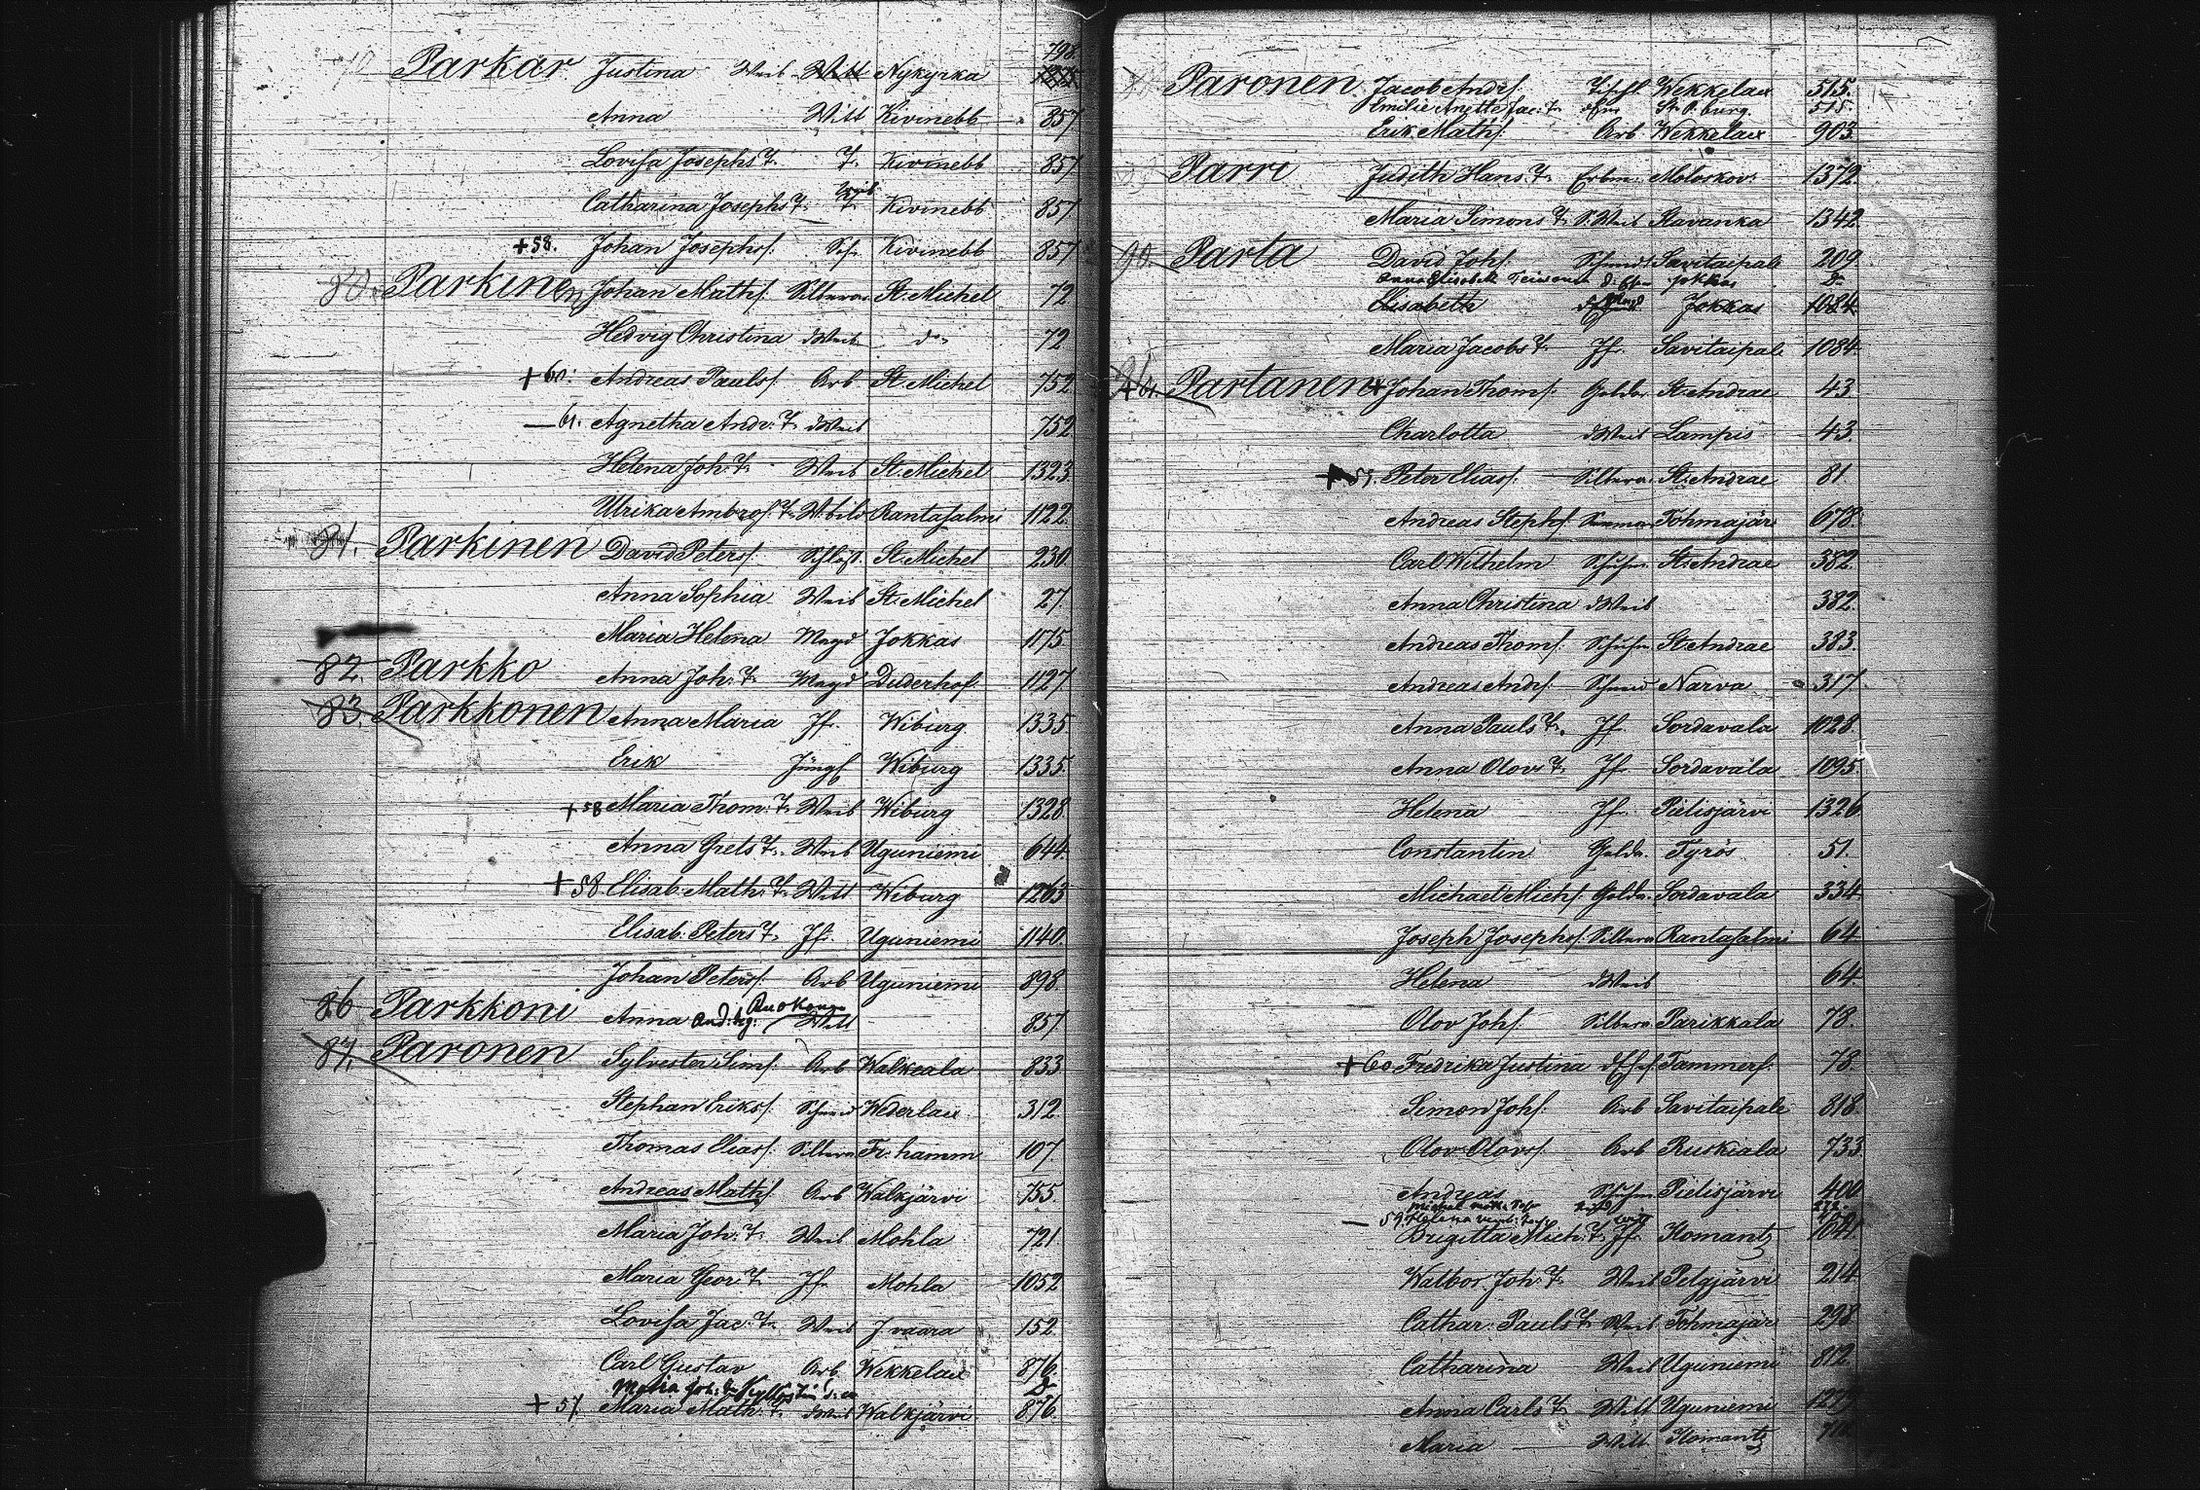 798.
Parkar Justina Weib Witt Nykyrka
Anna Witt Kivinebb 857
Lovisa Josephs T. T. Kivinebb 857
Weib
Catharina Josephs T. T. Kivinebb 857
+58. Johan Josephs. Kivinebb 857
80. Parkinen Johan Maths. Silberar. St. Michel 72
Hedvig Christina d Weib do 72
+60. Andreas Pauls. Arb St. Michel 752
— 61. Agnetha Andr. T. d Weib 752
Helena Joh. T. Weib St. Michel 1323
Ulrika Ambros. T. Rantasalmi 1122
81. Parkinen David Peters. Schloss. St. Michel 230
Anna Sophia Weib St. Michel 27
Maria Helena Magd Jokkas 1175
82. Parkko Anna Joh. T. Magd Duderhof 1127
83. Parkkonen Anna Maria Jf. Wiburg 1335
Erik Jüngl Wiburg 1335
+58 Maria Thom. T. Weib Wiburg 1328
Anna Grets T. Weib Uguniemi 644
+58. Elisab. Math. T. Witt Wiburg 1263
Elisab. Peters T. Jf. Uguniemi 1140
Johan Peters. Arb Uguniemi 898
86 Parkkoni Anna Witt 857
87. Paronen Sylvester Sims. Arb Walkeala 833
Stephan Eriks. Schmid Wederlax 312
Thomas Elias. Silberar Fr. hamm 107
Andreas Maths. Arb Walkjärvi 755
Maria Joh. T. Weib Mohla 721
Maria Geor. T. Jf. Mohla 1052
Lovisa Jac. T. Weib J vaara 152
Carl Gustav Arb. Wekkelax 876.
Maria Joh. T.
+57. Maria Math. T. d Weib Walkjärvi 876
Paronen Jacob Ands. Tischl Wekkelax 515.
Emilie Anette Jac. T. St. P. burg. 515.
Erik Maths. Arb Wekkelax 903
Parri Judith Hans. T. Moloskov. 1372
Maria Simons T. S. Weib Ravanka 1342
90. Parta David Johs. Schmidt Savitaipale 209
Anna Elisabeth Jokkas
Elisabeth Jokkas 1084
Maria Jacobs T. Jf. Savitaipale 1084
Partanen + Johan Thoms. Golda. St. Andrae 43
Charlotta d Weib Lampis 43
+ 59. Peter Elias. Silberar. St. Andrae 81
Andreas Stephs. Tohmajär 678
Carl Wilhelm Schuhm. St. Andrae 382
Anna Christina d Weib 382
Andreas Thoms. Schuhm. St. Andrae 383
Andreas Ands. Schmid Narva 317
Anna Pauls T. Jf. Sordavala 1028
Anna Olov. T. Jf. Sordavala 1095
Helena Jf. Pielisjärvi 1326
Constantin Golda. Tyrös 51.
Michael Michs. Golda. Sordavala 334
Joseph Josephs. Silberar Rantasalmi 64
Helena d Weib 64.
Olov Johs. Silberar. Parikkala 78.
+ 60 Fredrika Justina Tammerf. 78.
Simon Johs. Arb Savitaipale 818
Olov Olovs. Arb Ruskiala 733
Andreas Schuhm. Pielisjärvi 400
— 59. Helena
Brigitta Mich. T. Jf. Ilomants 1041
Walbor Joh. T. Weib Pelgjärvi 214
Cathar. Pauls T. Weib Tohmajär 298
Catharina Weib Uguniemi 812
Anna Carls T. Witt Uguniemi
Maria — Witt Ilomants